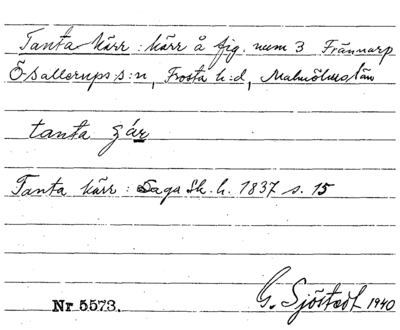 Tanta kärr : kärr å fig. num 3 Frännarp
Ö Sallerups s:n, Frosta h:d, Malmöhus län
tanta
Tanta kärr : Saga Sk. h. 1837 s. 15
Nr 5573. G. Sjöstedt 1940